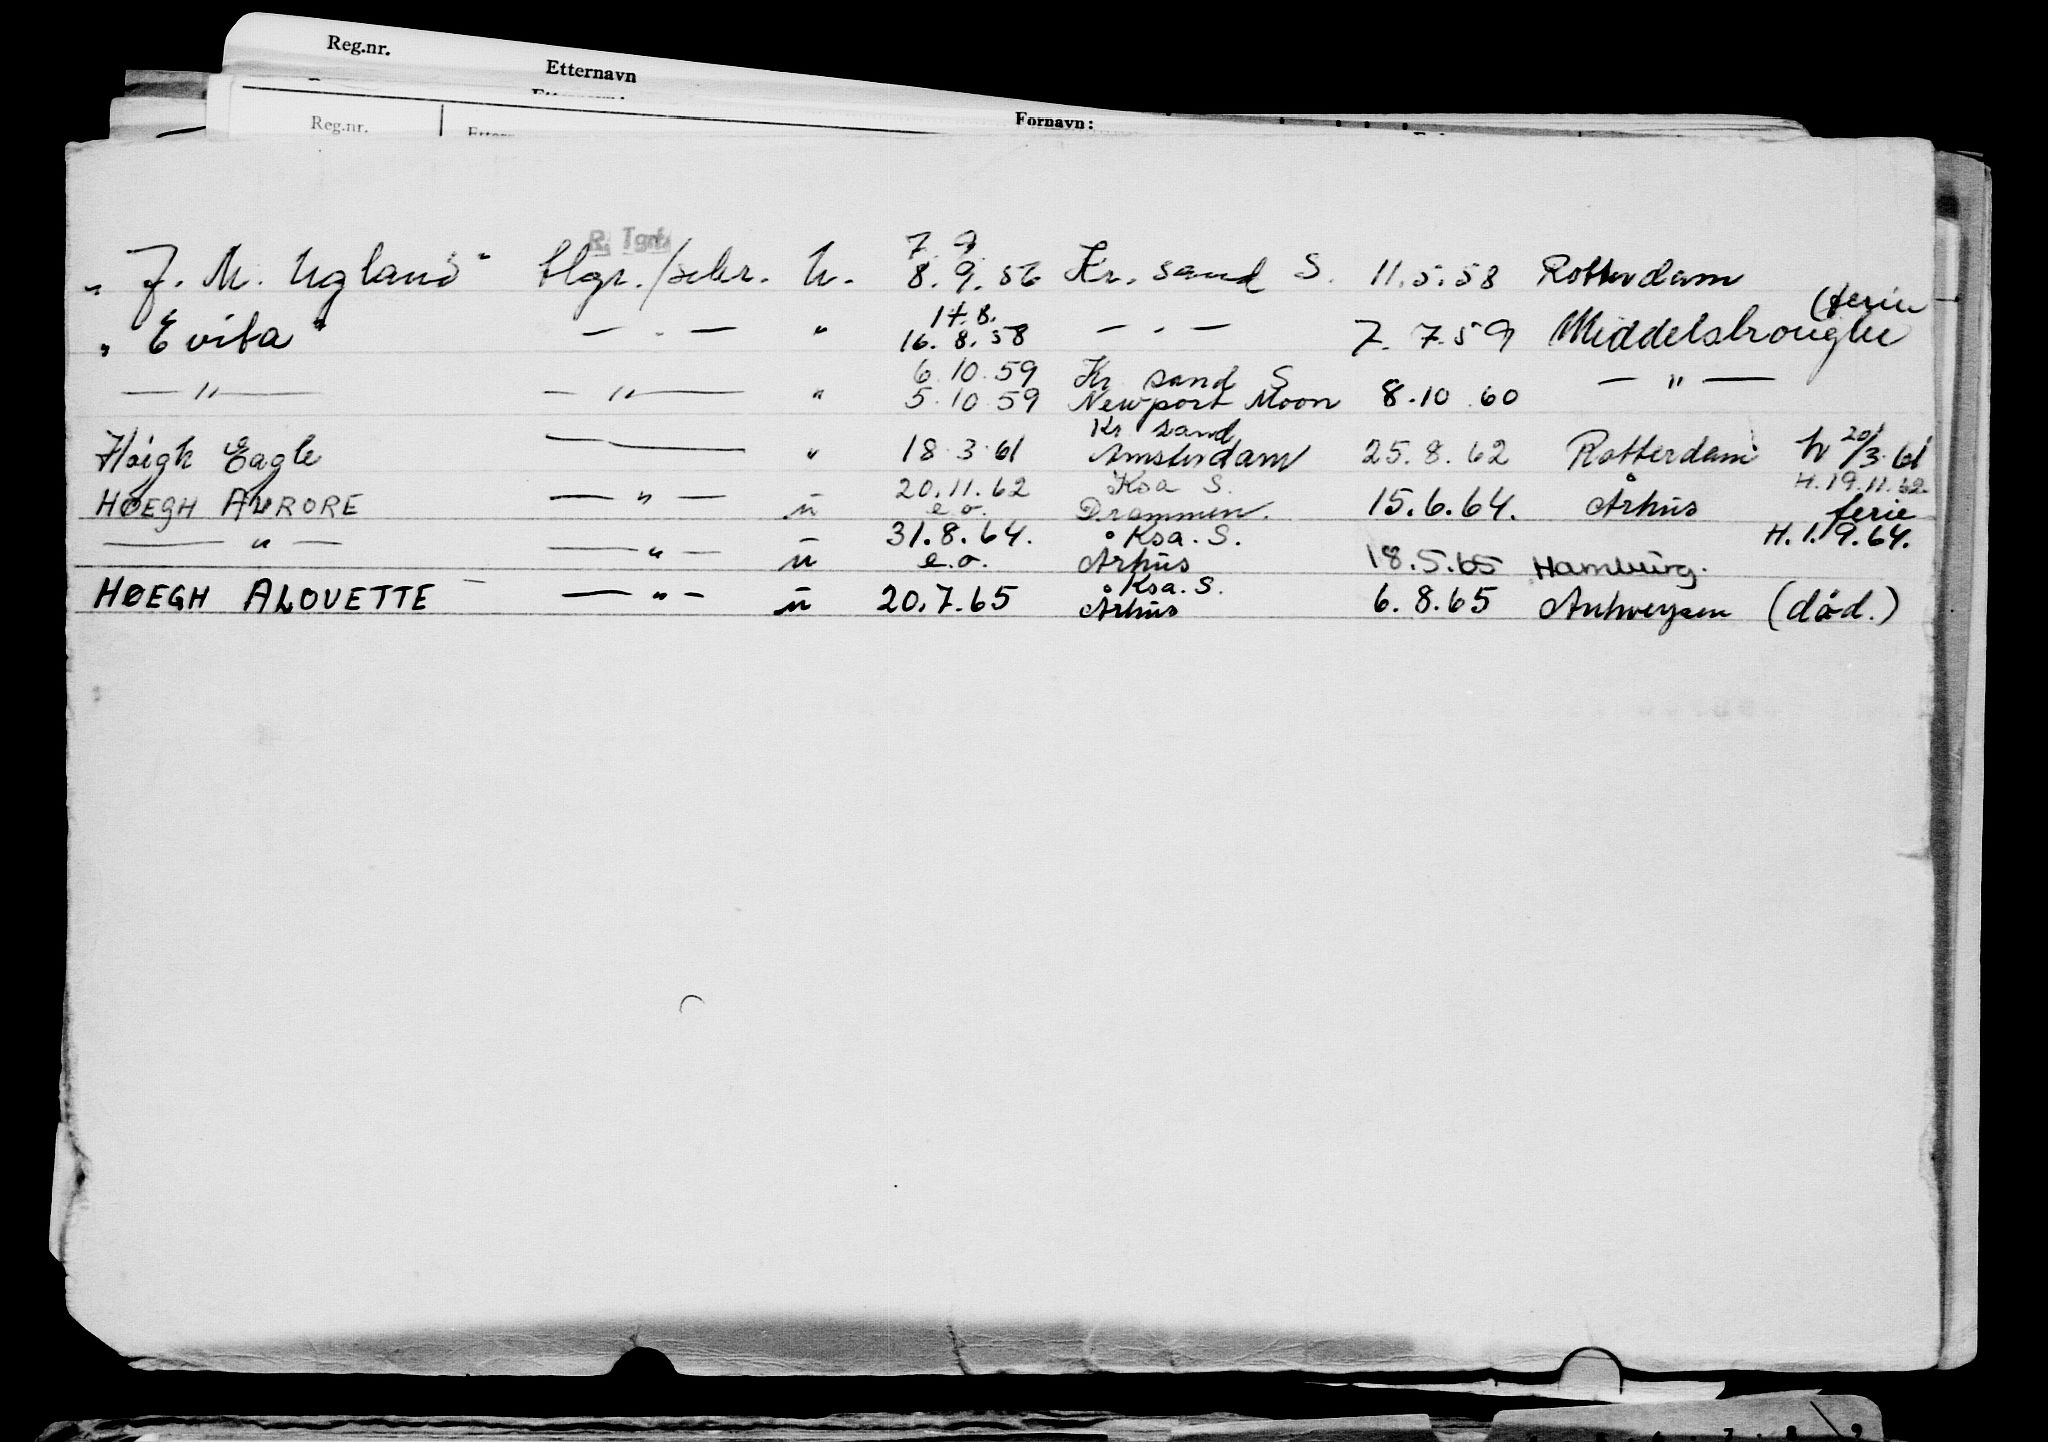 Reg.nr.
Etternavn
Reg.nr.
Fornavn:
R. Tgrf.
7. 9.
"J. M. Ugland" tlgr./sekr. U. 8. 9. 56 Kr. sand S. 11.5.58 Rotterdam
17.8. (ferie
"Evita" — . — " 16. 8. 58 — . — 7. 7.59 Middelsbroughe
6.10.59 Kr. sand S
— " — — " — " 5.10.59 Newport Moon 8.10.60 — " —
Kr sand
Høigh Eagle — " 18.3.61 Amsterdam 25.8.62 Rotterdam h 20/3.61
20.11.62 Ksa S. H.19.11.62.
HØEGH AURORE — " — u e.o. Drammen. 15.6.64. Århus ferie
31.8.64. Ksa. S. H. 1.9.64.
— " — — " — u e.o. Århus 18.5.65 Hamburg.
Ksa. S.
HØEGH ALOUETTE — " — u 20.7.65 Århus 6.8.65 Antwerpen (død.)